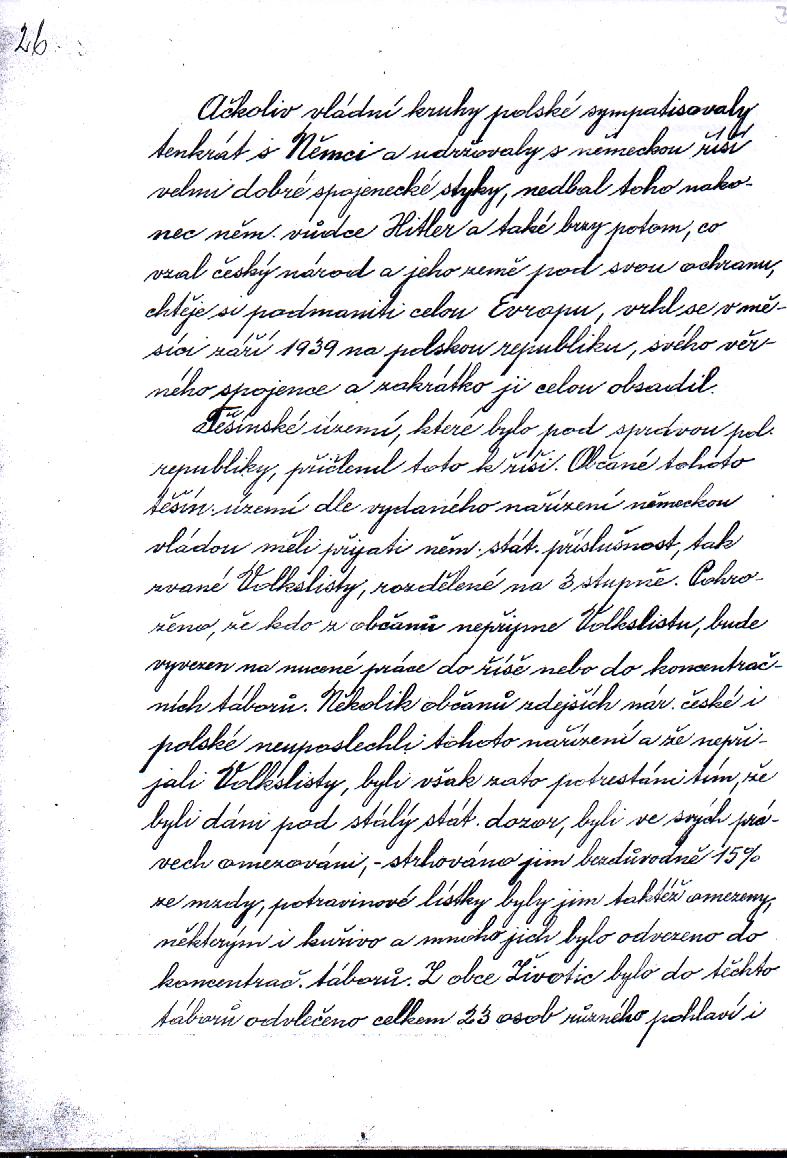 26
Ačkoliv vládní kruhy polské sympatisovaly
tenkrát s Němci a udržovaly s německou říší
velmi dobré spojenecké styky, nedbal toho nako-
nec něm. vůdce Hitler a také brzy potom, co
vzal český národ a jeho země pod svou ochranu,
chtěje si podmaniti celou Evropu, vrhl se v mě-
síci září 1939 na polskou republiku, svého věr-
ného spojence a zakrátko ji celou obsadil.
Těšínské území, které bylo pod správou pol.
republiky, přičlenil toto k říši. Občané tohoto
těšín. území dle vydaného nařízení německou
vládou měli přijati něm. stát. příslušnost, tak
zvané Volkslisty, rozdělené na 3 stupně. Pohro-
ženo, že kdo z občanů nepřijme Volkslistu, bude
vyvezen na nucené práce do říše nebo do koncentrač-
ních táborů. Několik občanů zdejších nár. české i
polské neuposlechli tohoto nařízení a že nepři-
jali Volkslisty, byli však zato potrestáni tím, že
byli dáni pod stálý stát. dozor, byli ve svých prá-
vech omezováni, - strhováno jim bezdůvodně 15%
ze mzdy, potravinové lístky byly jim taktéž omezeny,
některým i kuřivo a mnoho jich bylo odvezeno do
koncentrač. táborů. Z obce Životic bylo do těchto
táborů odvlečeno celkem 23 osob různého pohlaví i